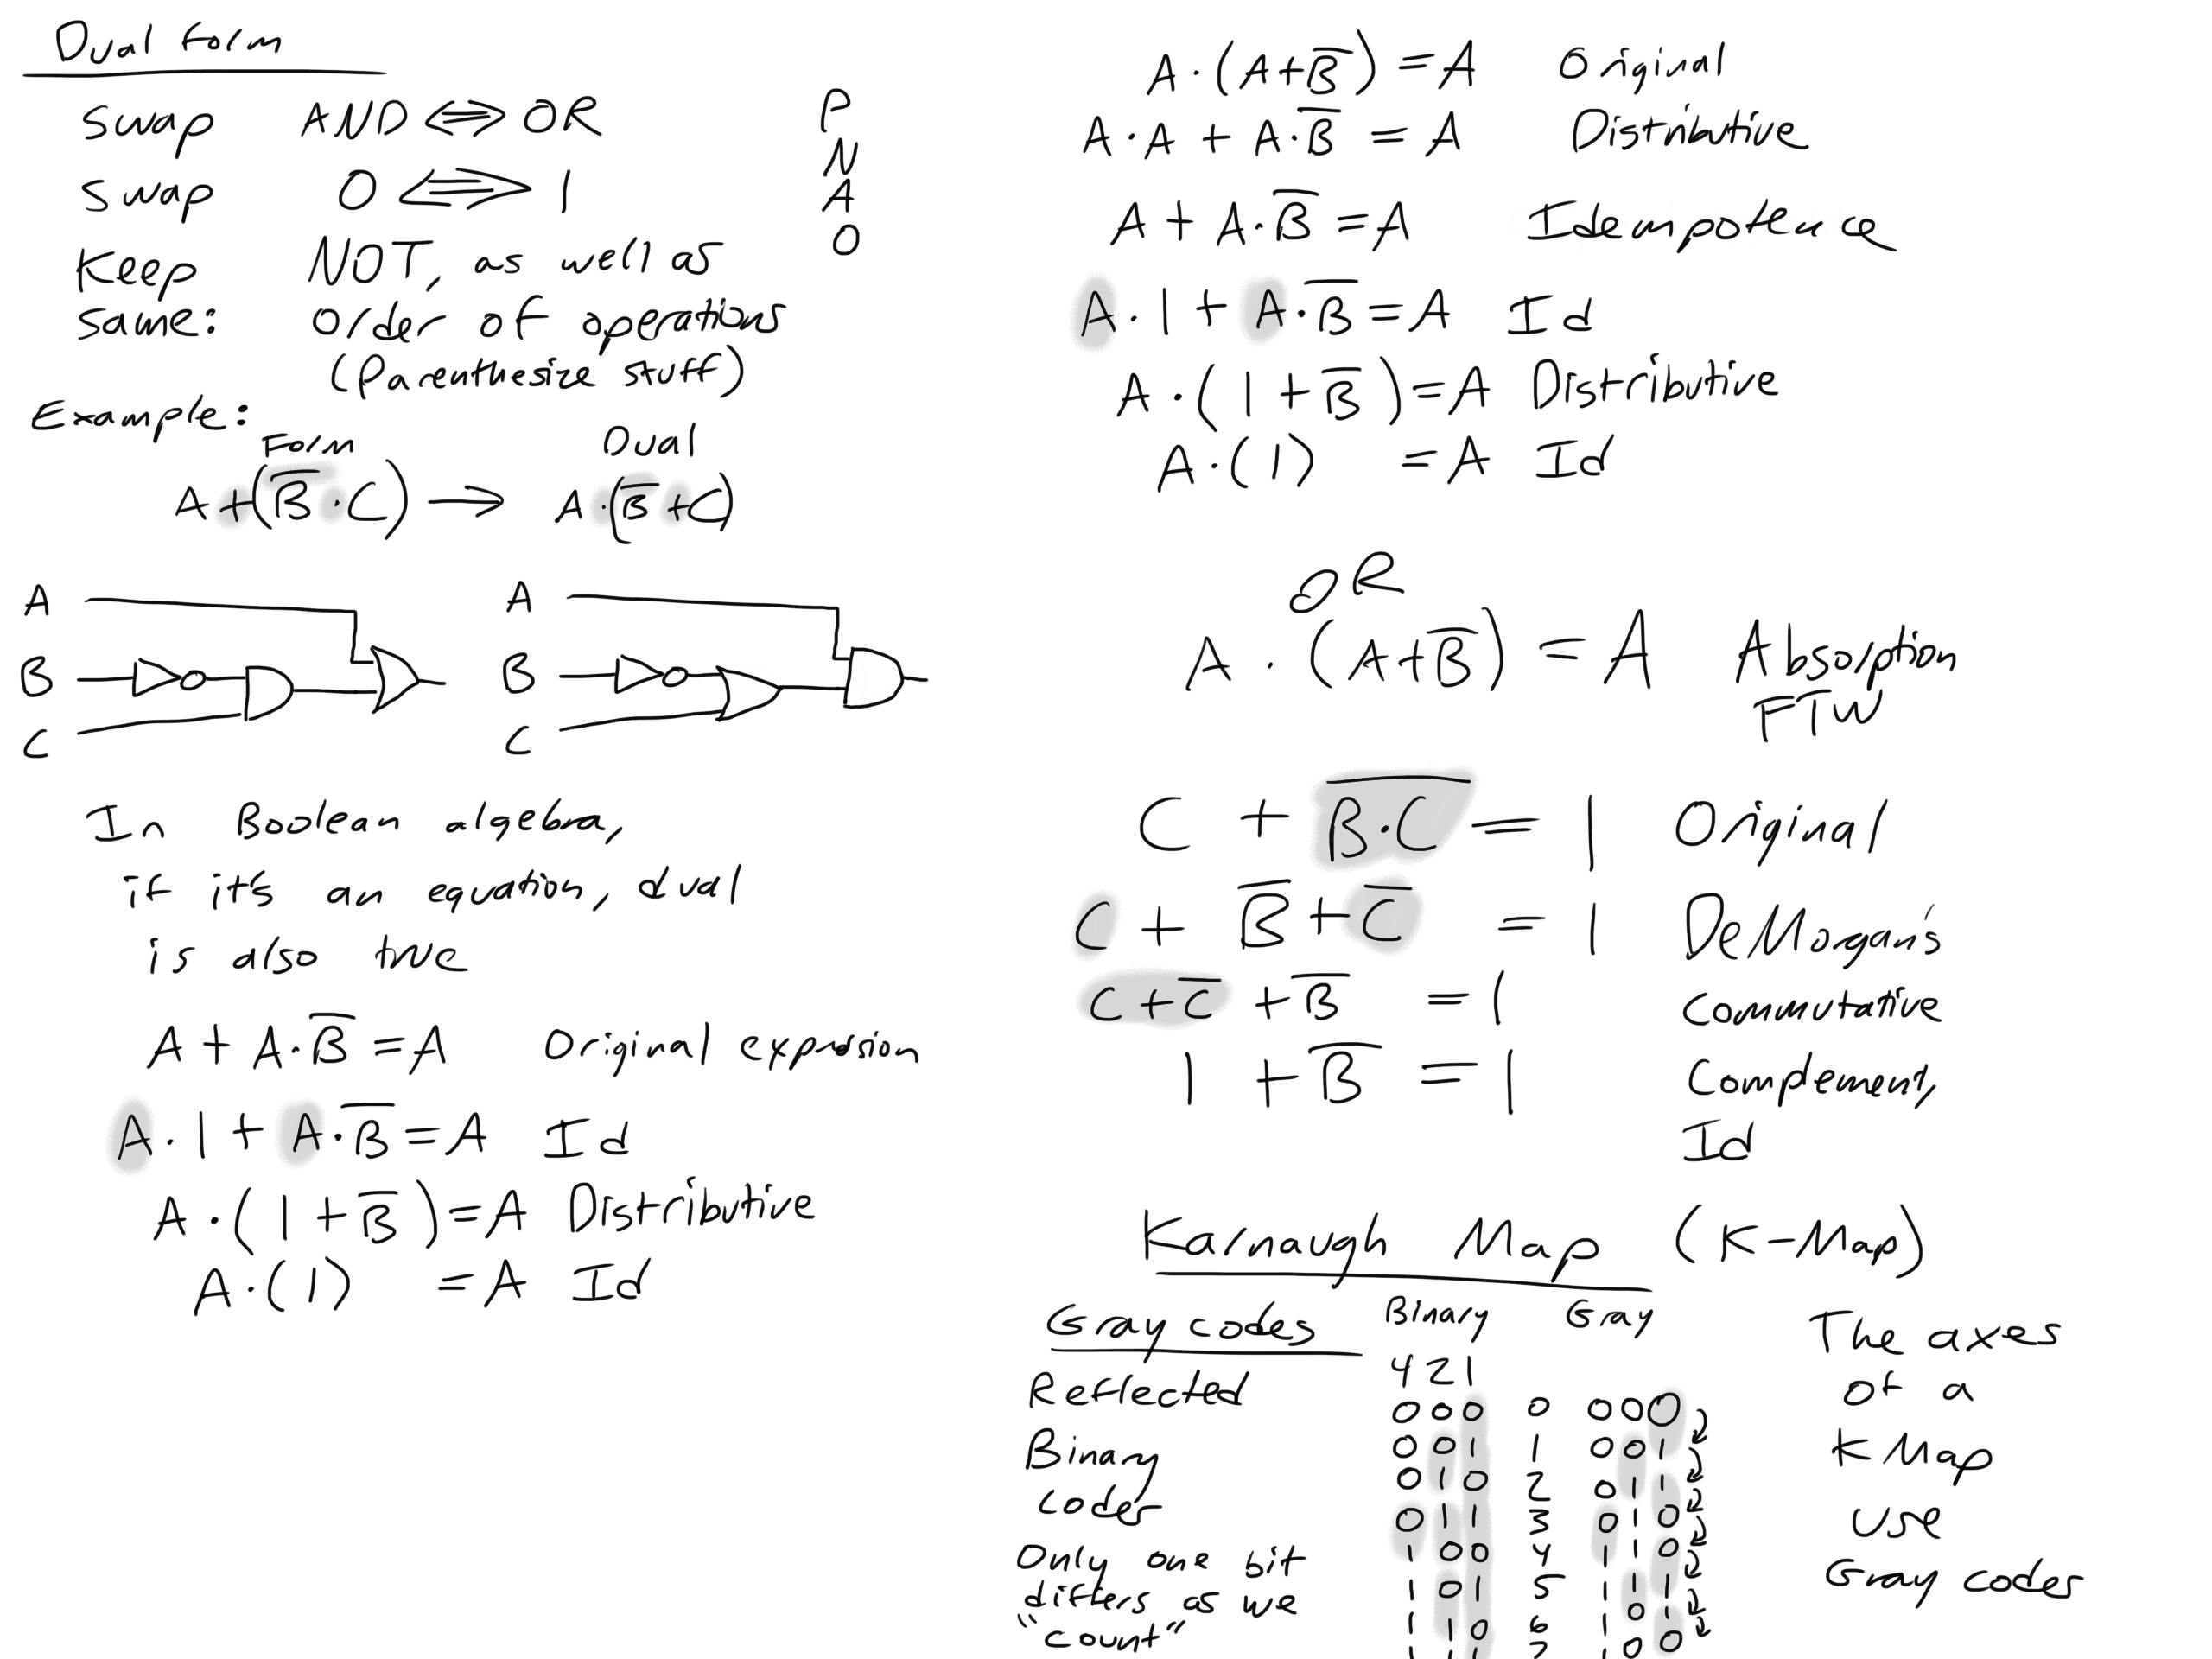 Dual Form
Swap AND ⟺ OR
Swap 0 ⟺ 1
Keep NOT, as well as
same: order of operations
(Parenthesize stuff)
P
N
A
O
Example:
Form Dual
A+(B̅·C) → A·(B̅+C)
A A
B B
C C
In Boolean algebra,
if it's an equation, dual
is also true
A + A·B̅ = A Original expression
A·1 + A·B̅ = A Id
A·(1+B̅) = A Distributive
A·(1) = A Id
A·(A+B̅) = A Original
A·A + A·B̅ = A Distributive
A + A·B̅ = A Idempotence
A·1 + A·B̅ = A Id
A·(1+B̅) = A Distributive
A·(1) = A Id
OR
A·(A+B̅) = A Absorption
FTW
C + B̅·̅C̅ = 1 Original
C + B̅ + C̅ = 1 DeMorgan's
C + C̅ + B̅ = 1 Commutative
1 + B̅ = 1 Complement,
Id
Karnaugh Map (K-Map)
Gray codes
Reflected
Binary
codes
Only one bit
differs as we
"count"
Binary Gray
421
000 0 000
001 1 001
010 2 011
011 3 010
100 4 110
101 5 111
110 6 101
111 7 100
The axes
of a
K Map
use
Gray codes